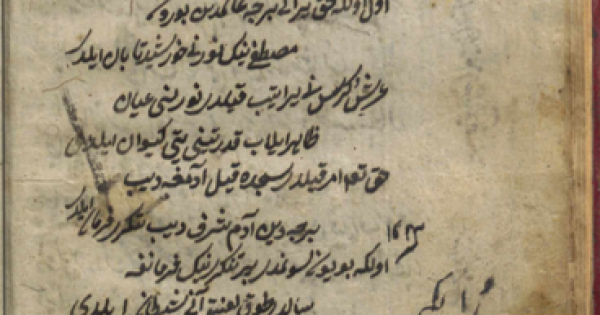 اول اولکه حق یراتی بر جه عالمدین بورون
مصطفی نینک نورنی خورشید تابان ایلدی
عرش کرسی نی یراتیب قیلدی نورینی عیان
ظاهر ایلاب قدرتینی یتی کیوان ایلدی
حق تعم امر قیلدی سجده قیل آدمغه دیب
برجه دین آدم مشرف دیب تنکری فرمان ایلدی
اولکه بویون سونمدی بیر تنکری نینک فرمانغه
سالدی طوق لعنت آنی شیطان ایلدی